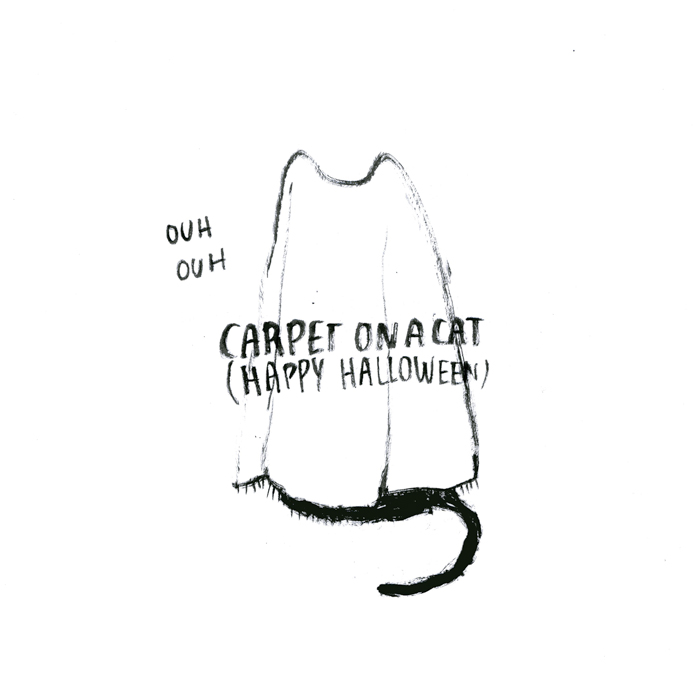 OUH
OUH
CARPET ON A CAT
(HAPPY HALLOWEEN)